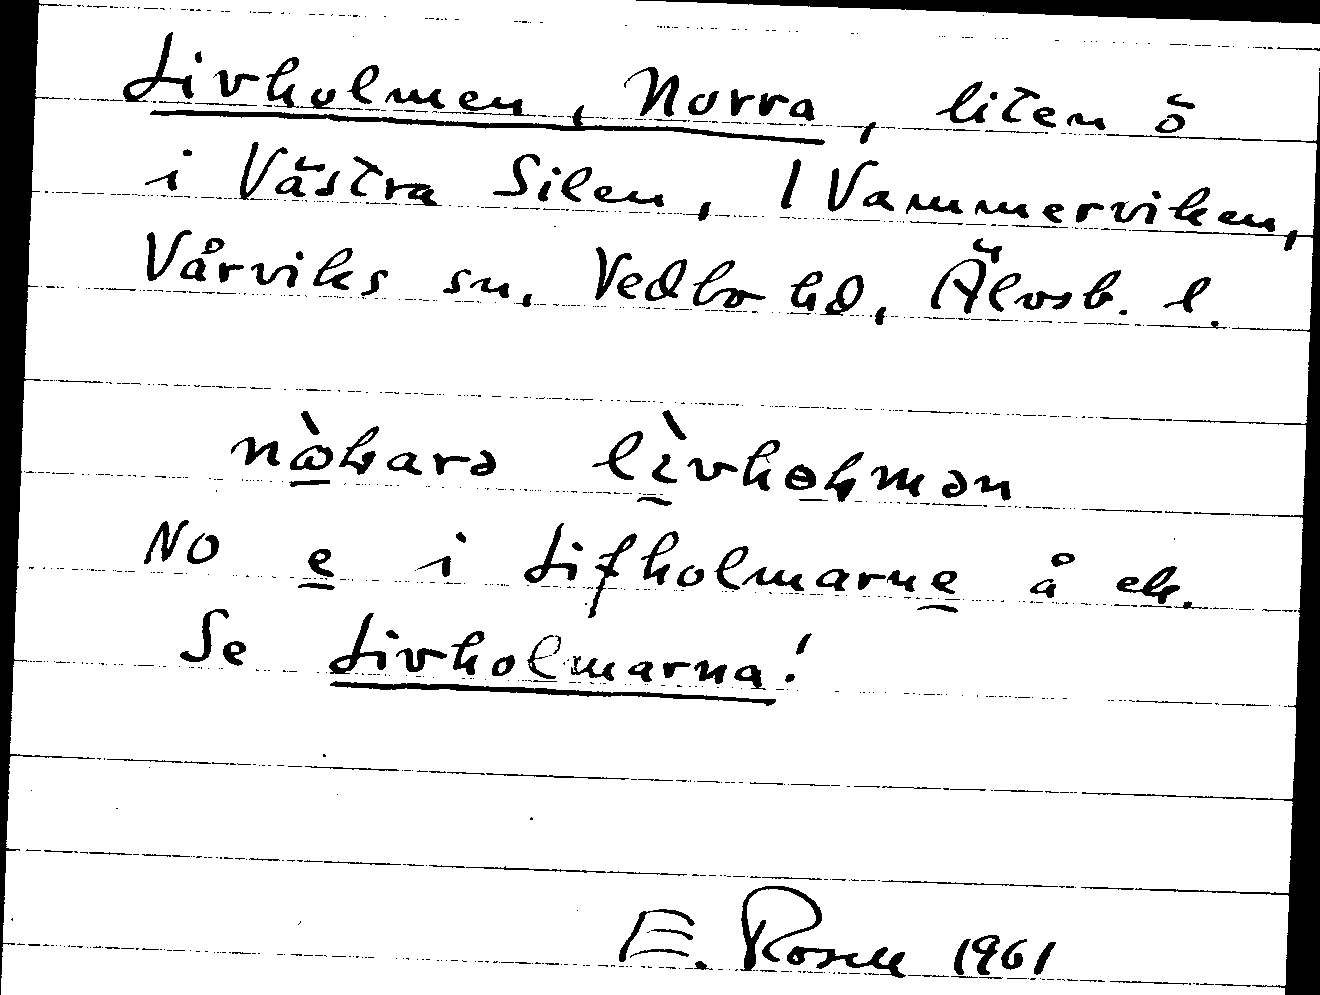 Livholmen, Norra, liten ö
i Västra Silen, I Vammerviken,
Vårviks sn, Vedbo hd, Älvsb. l.
livholmən
NO e i Lifholmarne å ek.
Se Livholmarna!
E. Rosell 1961